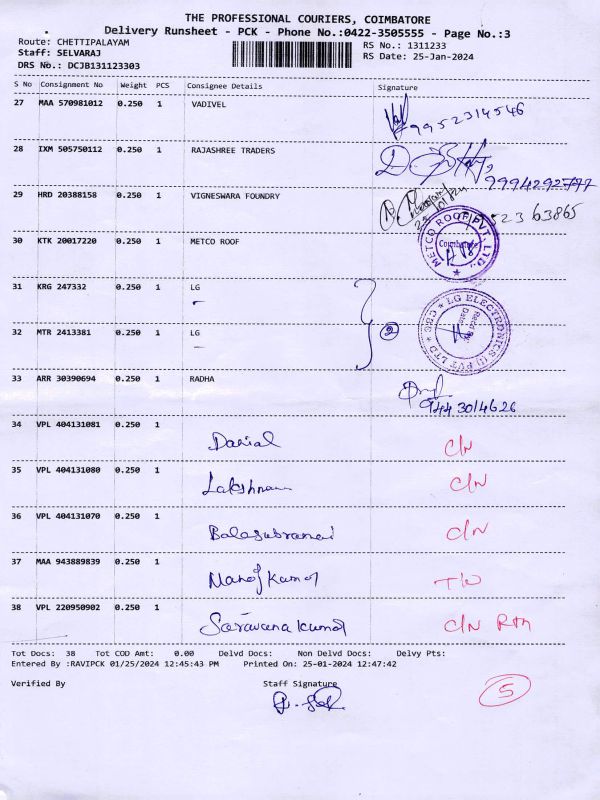 THE PROFESSIONAL COURIERS, COIMBATORE
Delivery Runsheet - PCK - Phone No.:0422-3505555 - Page No.:3
Route: CHETTIPALAYAM
Staff: SELVARAJ
DRS No.: DCJB131123303
RS No.: 1311233
RS Date: 25-Jan-2024
S No Consignment No Weight PCS Consignee Details Signature
27 MAA 570981012 0.250 1 VADIVEL
9952314546
28 IXM 505750112 0.250 1 RAJASHREE TRADERS
29 HRD 20388158 0.250 1 VIGNESWARA FOUNDRY
30 KTK 20017220 0.250 1 METCO ROOF METCO ROOF PVT LTD. Coimbatore
31 KRG 247332 0.250 1 LG
LG ELECTRONICS (I) PVT LTD
32 MTR 2413381 0.250 1 LG 2
33 ARR 30390694 0.250 1 RADHA
9443014626
34 VPL 404131081 0.250 1 Danial C/N
35 VPL 404131080 0.250 1 Lakshman C/N
36 VPL 404131070 0.250 1 C/N
37 MAA 943889839 0.250 1 Manoj Kumar
38 VPL 220950902 0.250 1 Saravana Kumar C/N Rtn
Tot Docs: 38 Tot COD Amt: 0.00 Delvd Docs: Non Delvd Docs: Delvy Pts:
Entered By :RAVIPCK 01/25/2024 12:45:43 PM Printed On: 25-01-2024 12:47:42
Verified By Staff Signature
5